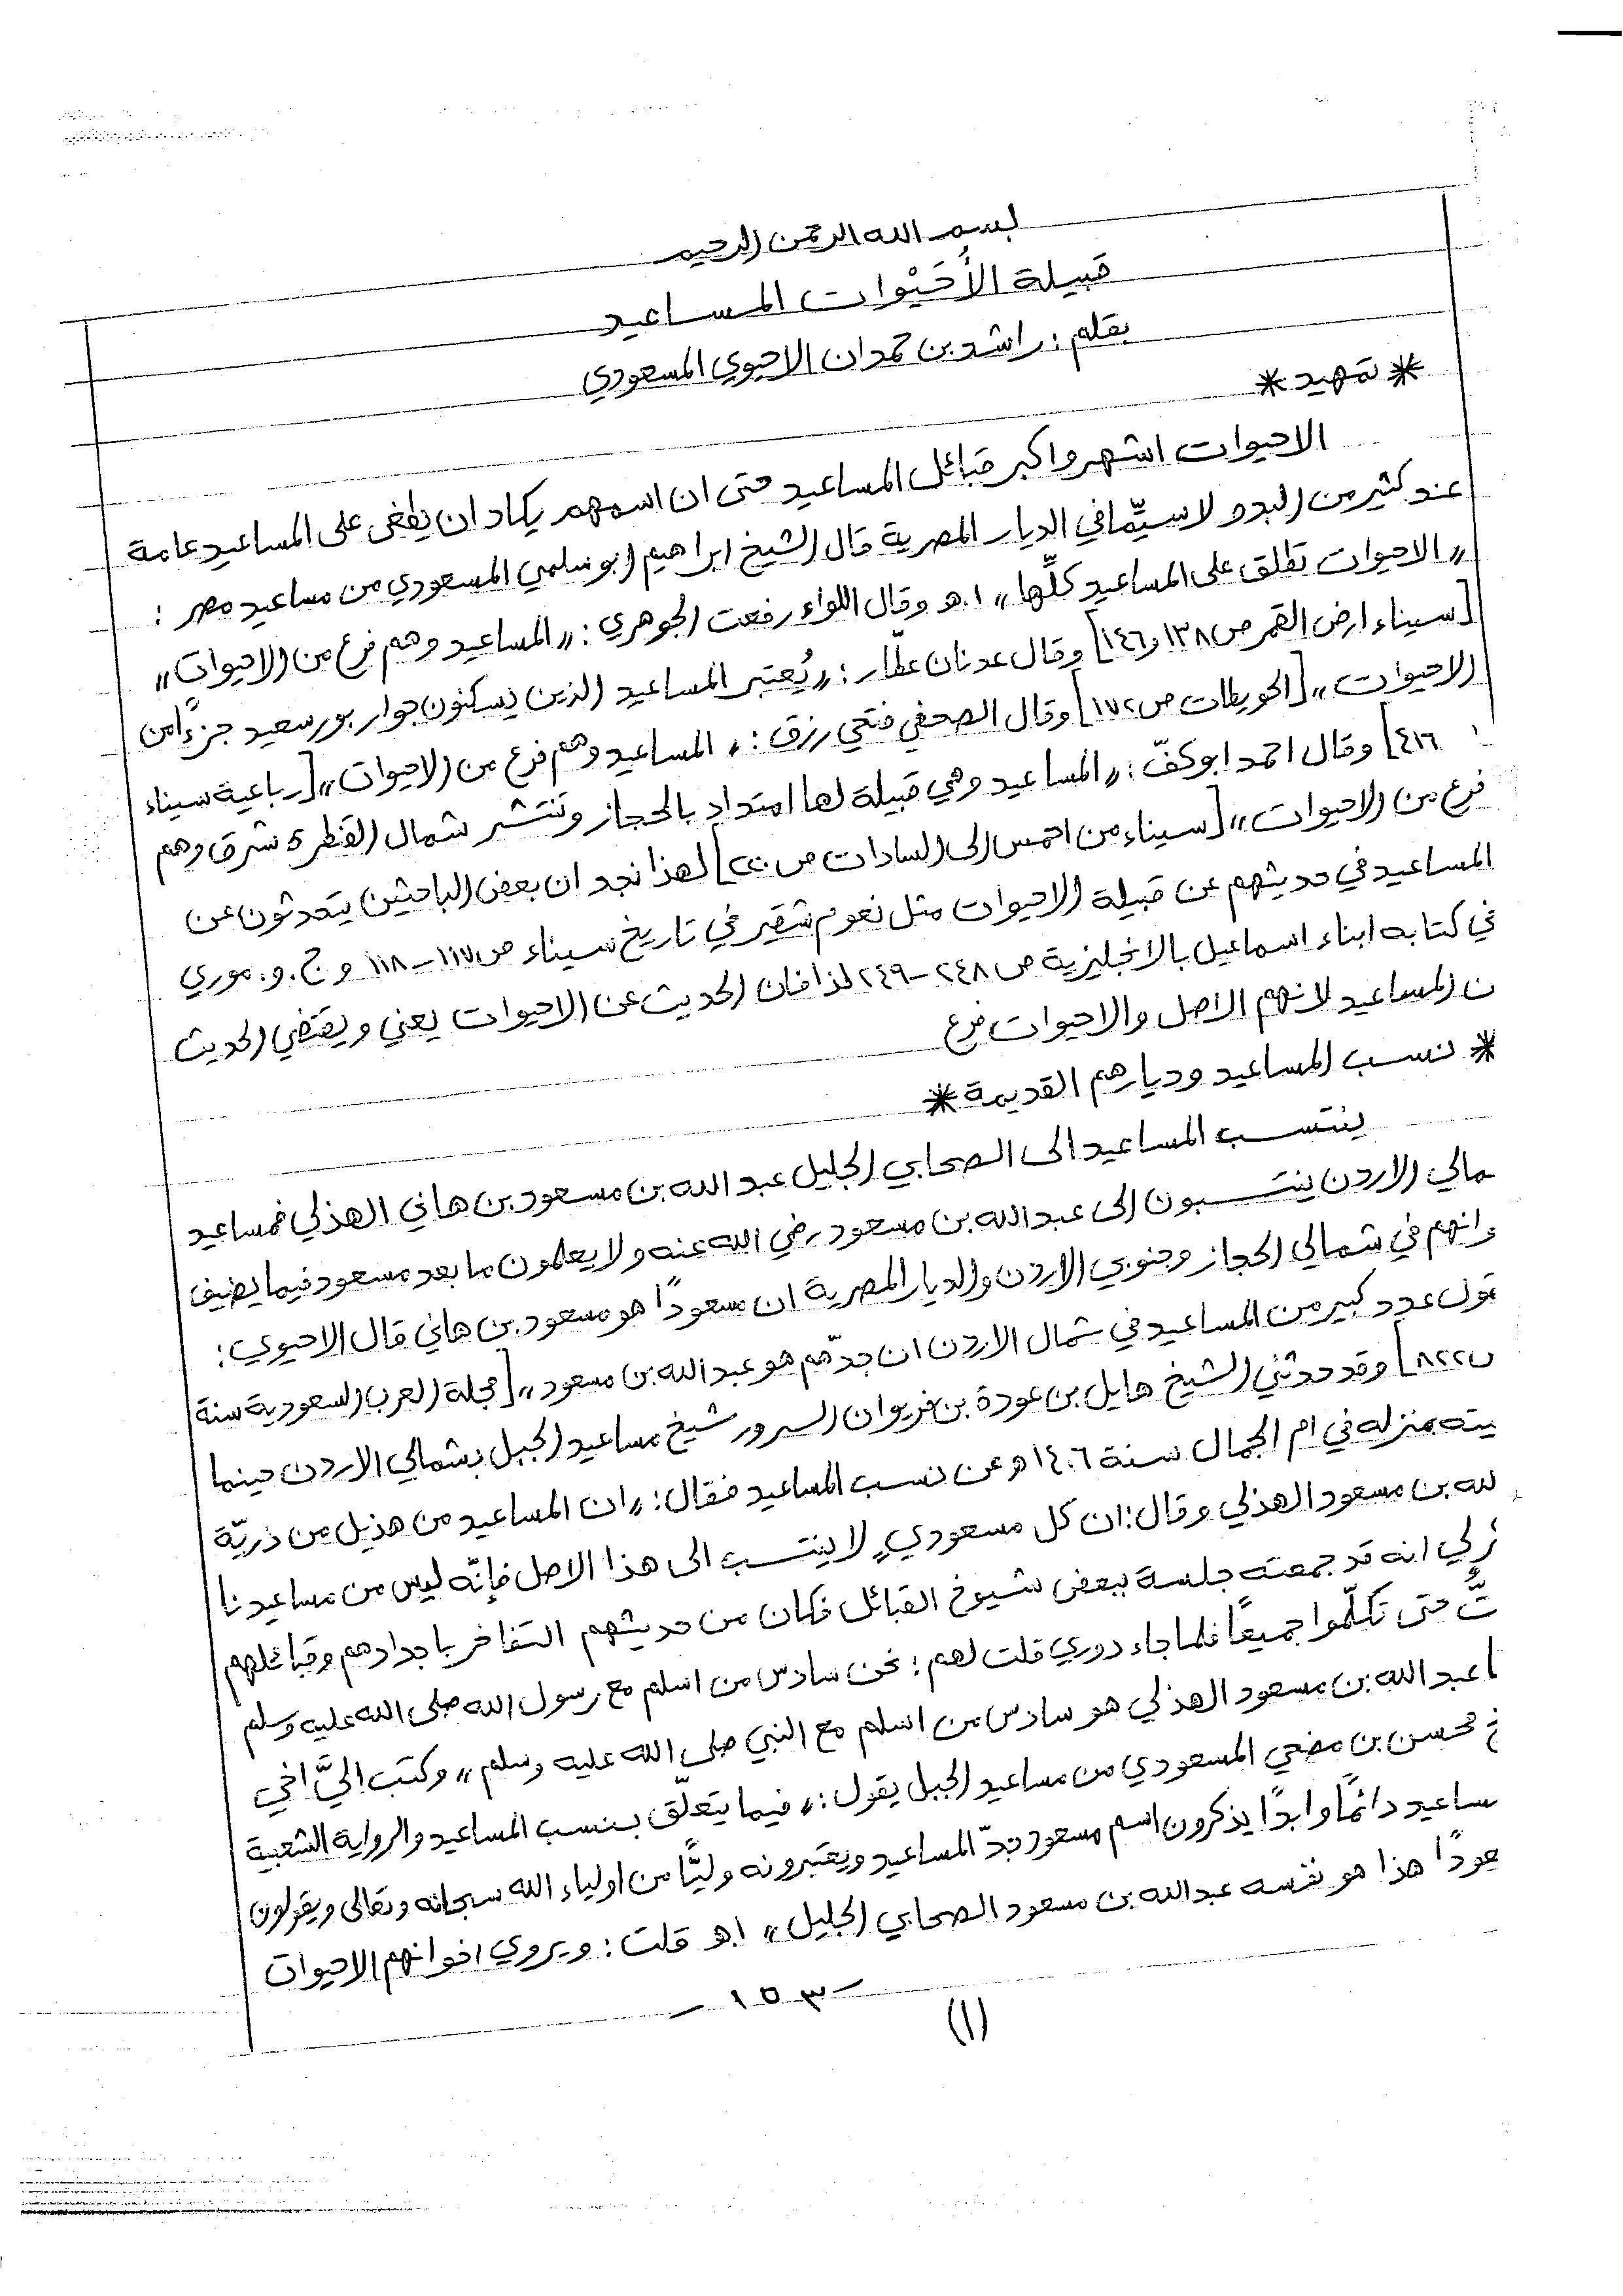 بسم الله الرحمن الرحيم
قبيلة الأُحَيْوات المساعيد
بقلم : راشد بن حمدان الاحيوي المسعودي
* تمهيد *
الاحيوات اشهر واكبر قبائل المساعيد حتى ان اسمهم يكاد ان يطغى على المساعيد عامة
عند كثير من البدو لاسيّما في الديار المصرية قال الشيخ ابراهيم ابو سلمي المسعودي من مساعيد مصر :
" الاحيوات تطلق على المساعيد كلّها " ا.هـ وقال اللواء رفعت الجوهري : " المساعيد وهم فرع من الاحيوات "
[ سيناء ارض القمر ص ١٣٨ و١٤٦ ] وقال عدنان عطّار : " يُعتبر المساعيد الذين يسكنون جوار بور سعيد جزءًا من
الاحيوات " [ الحويطات ص ١٧٢ ] وقال الصحفي فتحي رزق : " المساعيد وهم فرع من الاحيوات " [ رباعية سيناء
٤١٦ ] وقال احمد ابو كفّ : " المساعيد وهي قبيلة لها امتداد بالحجاز وتنتشر شمال القنطرة شرق وهم
فرع من الاحيوات " [ سيناء من احمس الى السادات ص ٢٢٠ ] لهذا نجد ان بعض الباحثين يتحدثون عن
المساعيد في حديثهم عن قبيلة الاحيوات مثل نعوم شقير في تاريخ سيناء ص ١١٧ – ١١٨ و ج . و . موري
في كتابه ابناء اسماعيل بالانجليزية ص ٢٤٨ – ٢٤٩ لذا فان الحديث عن الاحيوات يعني ويقتضي الحديث
ن المساعيد لانهم الاصل والاحيوات فرع
* نسب المساعيد وديارهم القديمة *
ينتسب المساعيد الى الصحابي الجليل عبد الله بن مسعود بن هاني الهذلي فمساعيد
مالي الاردن ينتسبون الى عبدالله بن مسعود رضي الله عنه ولا يعلمون ما بعد مسعود فيما يضيف
وانهم في شمالي الحجاز وجنوبي الاردن والديار المصرية ان مسعودًا هو مسعود بن هاني قال الاحيوي :
قول عدد كبير من المساعيد في شمال الاردن ان جدّهم هو عبدالله بن مسعود " [ مجلة العرب السعودية سنة
٢٢ ٨ ] وقد حدثني الشيخ هايل بن عودة بن فريوان السرور شيخ مساعيد الجبل بشمالي الاردن حينما
يته بمنزله في ام الجمال سنة ١٤٠٦ هـ عن نسب المساعيد فقال : " ان المساعيد من هذيل من ذريّة
لله بن مسعود الهذلي وقال : ان كل مسعوديٍ لا ينتسب الى هذا الاصل فإنّه ليس من مساعيدنا
رلي انه قد جمعته جلسة ببعض شيوخ القبائل فكان من حديثهم التفاخر باجدادهم وقبائلهم
تُّ حتى تكلّموا جميعًا فلما جاء دوري قلت لهم : نحن سادس من اسلم مع رسول الله صلى الله عليه وسلم
ا عبد الله بن مسعود الهذلي هو سادس من اسلم مع النبي صلى الله عليه وسلم " وكتب اليَّ اخي
خ محسن بن مضحي المسعودي من مساعيد الجبل يقول : " فيما يتعلّق بنسب المساعيد والرواية الشعبية
ساعيد دائمًا وابدًا يذكرون اسم مسعود جدّ المساعيد ويعتبرونه وليًّا من اولياء الله سبحانه وتعالى ويقولون
عودًا هذا هو نفسه عبدالله بن مسعود الصحابي الجليل " ا.هـ قلت : ويروي اخوانهم الاحيوات
– ١٥٣ –
(١)